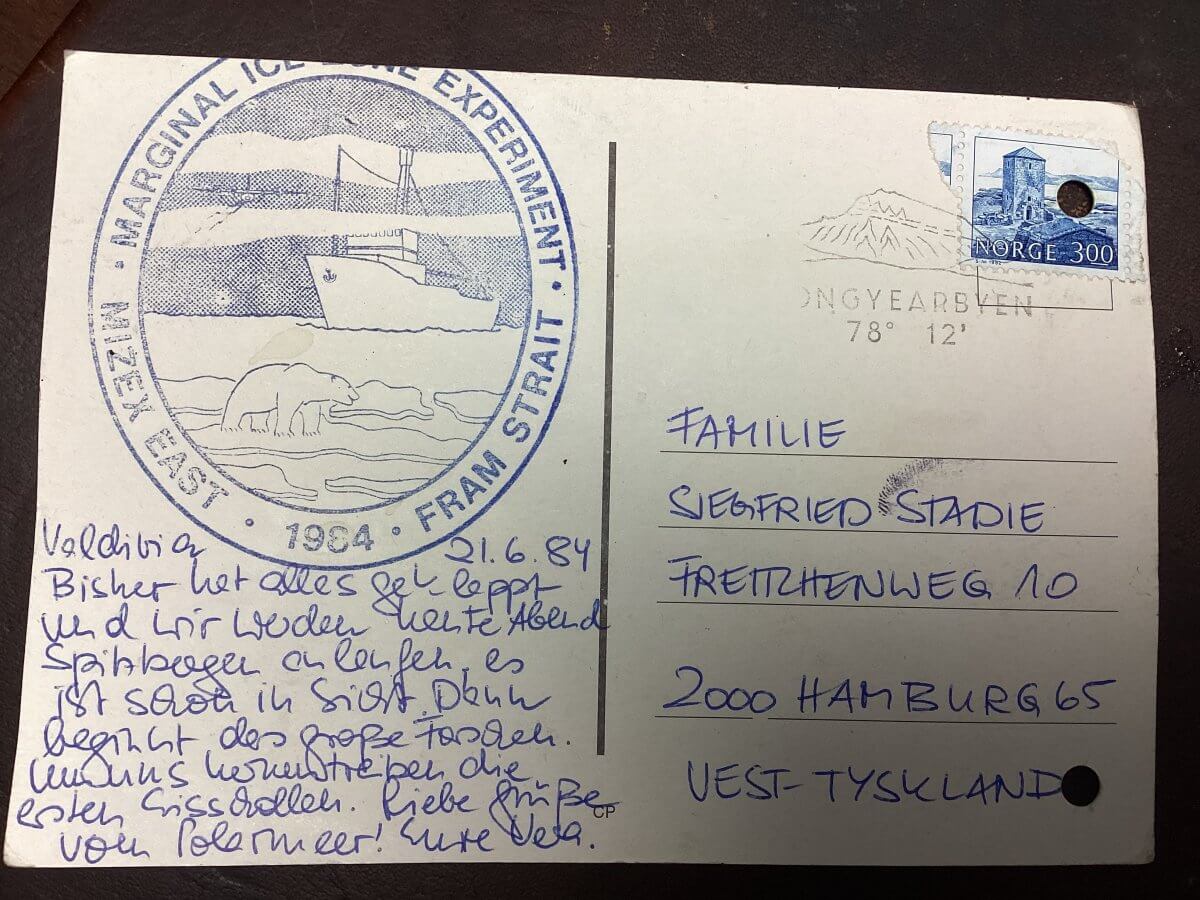 MIZEX EAST · MARGINAL ICE ZONE EXPERIMENT · FRAM STRAIT · 1984 ·
Valdivia 21.6.84
Bisher hat alles geklappt
und wir werden heute Abend
Spitzbergen anlaufen, es
ist schon in Sicht. Dann
beginnt das große Forschen.
um uns herum treiben die
ersten Eisschollen. Liebe Grüße
vom Polarmeer! Eure Vera.
NORGE 300
ONGYEARBYEN
78° 12'
FAMILIE
SIEGFRIED STADIE
10
2000 HAMBURG 65
VEST-TYSKLAND
CP